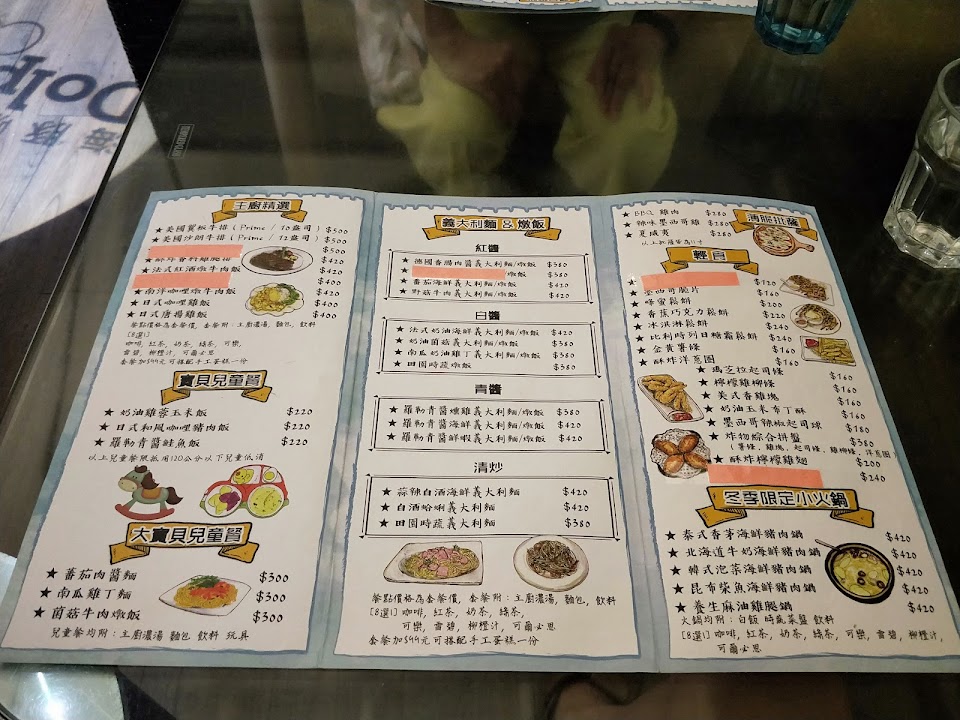 主廚精選
★ 美國翼板牛排 (Prime / 10盎司) $500
★ 美國沙朗牛排 (Prime / 12盎司) $500
$500
$420
★ 法式紅酒燉牛肉飯 $420
$400
★ 南洋咖哩燉牛肉飯 $420
★ 日式咖哩雞飯 $400
★ 日式唐揚雞飯 $400
餐點價格為套餐價, 套餐附: 主廚濃湯, 麵包, 飲料
[8選1]
咖啡, 紅茶, 奶茶, 綠茶, 可樂,
雪碧, 柳橙汁, 可爾必思
套餐加$99元可搭配手工蛋糕一份
寶貝兒童餐
★ 奶油雞蓉玉米飯 $220
★ 日式和風咖哩豬肉飯 $220
★ 羅勒青醬鮭魚飯 $220
以上兒童餐限抵用120公分以下兒童低消
大寶貝兒童餐
★ 蕃茄肉醬麵 $300
★ 南瓜雞丁麵 $300
★ 菌菇牛肉燉飯 $300
兒童餐均附: 主廚濃湯 麵包 飲料 玩具
義大利麵 & 燉飯
紅醬
★ 德國香腸肉醬義大利麵/燉飯 $380
燉飯 $380
★ 番茄海鮮義大利麵/燉飯 $420
★ 野菇牛肉義大利麵/燉飯 $420
白醬
★ 法式奶油海鮮義大利麵/燉飯 $420
★ 奶油菌菇義大利麵/燉飯 $380
★ 南瓜奶油雞丁義大利麵/燉飯 $380
★ 田園時蔬燉飯 $380
青醬
★ 羅勒青醬燻雞義大利麵/燉飯 $380
★ 羅勒青醬海鮮義大利麵/燉飯 $420
★ 羅勒青醬鮮蝦義大利麵/燉飯 $380
清炒
★ 蒜辣白酒海鮮義大利麵 $420
★ 白酒蛤蜊義大利麵 $420
★ 田園時蔬義大利麵 $380
餐點價格為套餐價, 套餐附: 主廚濃湯, 麵包, 飲料
[8選1] 咖啡, 紅茶, 奶茶, 綠茶,
可樂, 雪碧, 柳橙汁, 可爾必思
套餐加$99元可搭配手工蛋糕一份
薄脆批薩
★ BBQ 雞肉 $280
★ 辣味墨西哥雞 $280
★ 夏威夷 $280
以上批薩皆為11寸
輕食
$120
★ 墨西哥脆片 $160
★ 蜂蜜鬆餅 $200
★ 香蕉巧克力鬆餅 $220
★ 冰淇淋鬆餅 $240
★ 比利時列日糖霜鬆餅 $240
★ 金黃薯條 $160
★ 酥炸洋蔥圈 $160
★ 瑪芝拉起司條 $160
★ 檸檬雞柳條 $160
★ 美式香雞塊 $160
★ 奶油玉米布丁酥 $160
★ 墨西哥辣椒起司球 $180
★ 炸物綜合拼盤 $380
(薯條, 雞塊, 起司條, 雞柳條, 洋蔥圈)
★ 酥炸檸檬雞翅 $200
$240
冬季限定小火鍋
★ 泰式香茅海鮮豬肉鍋 $420
★ 北海道牛奶海鮮豬肉鍋 $420
★ 韓式泡菜海鮮豬肉鍋 $420
★ 昆布柴魚海鮮豬肉鍋 $420
★ 養生麻油雞腿鍋 $420
火鍋均附: 白飯 時蔬菜盤 飲料
[8選1] 咖啡, 紅茶, 奶茶, 綠茶, 可樂, 雪碧, 柳橙汁,
可爾必思